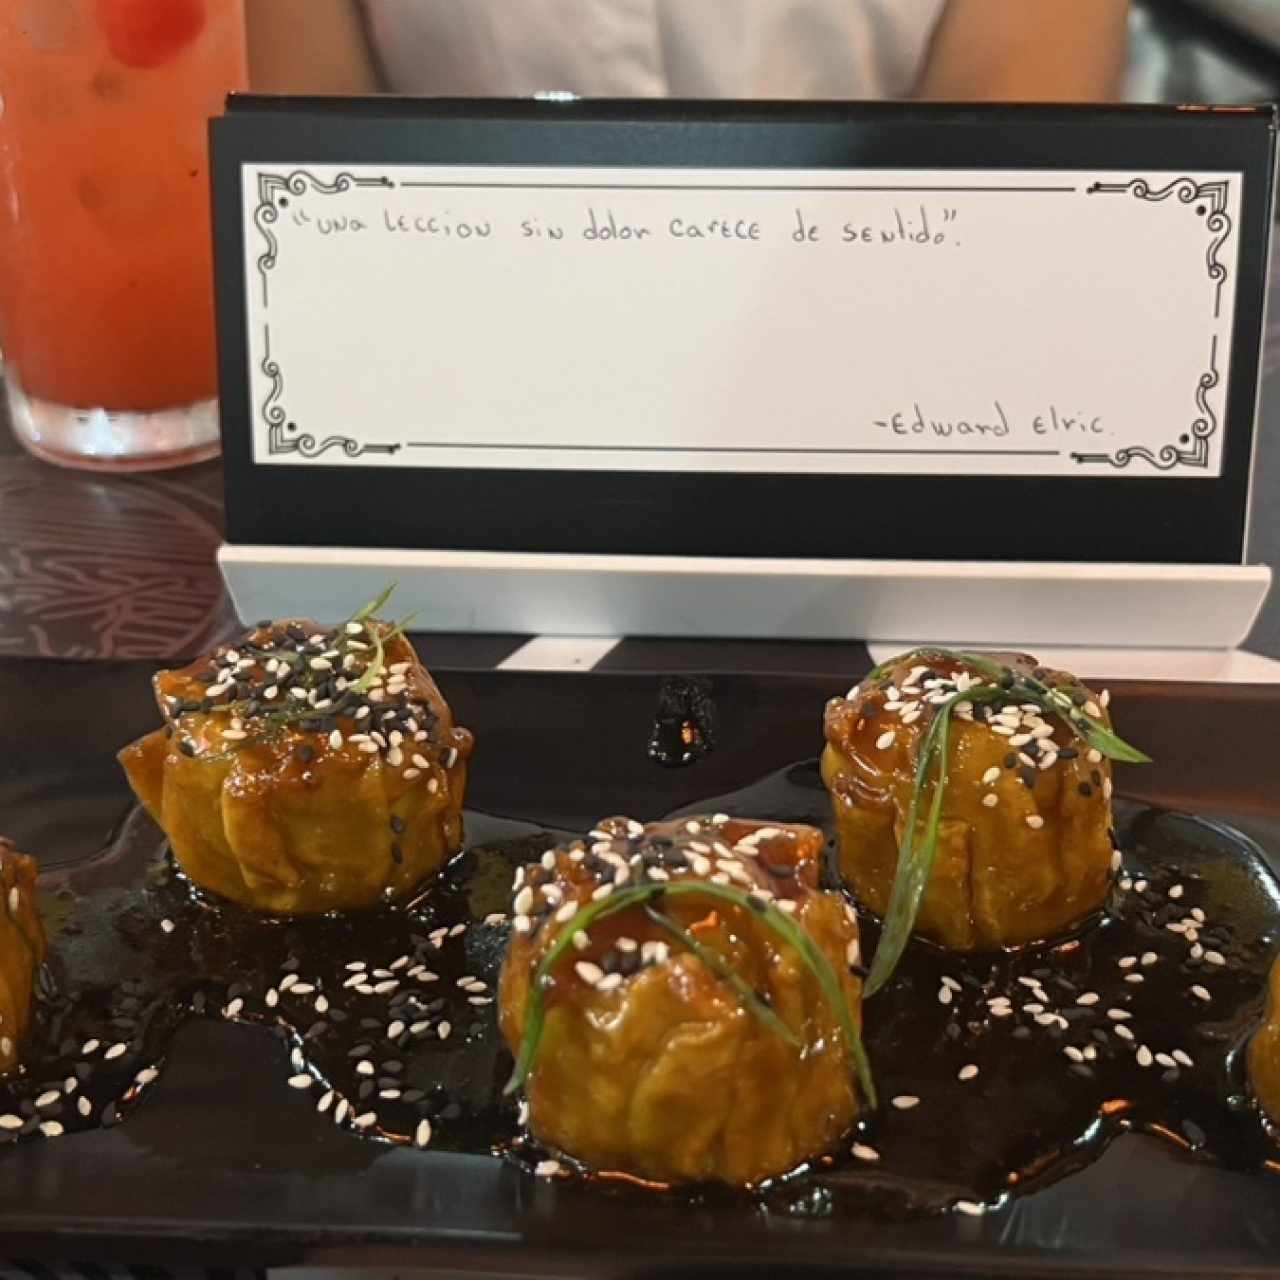 "una leccion sin dolor carece de sentido".
-Edward Elric.